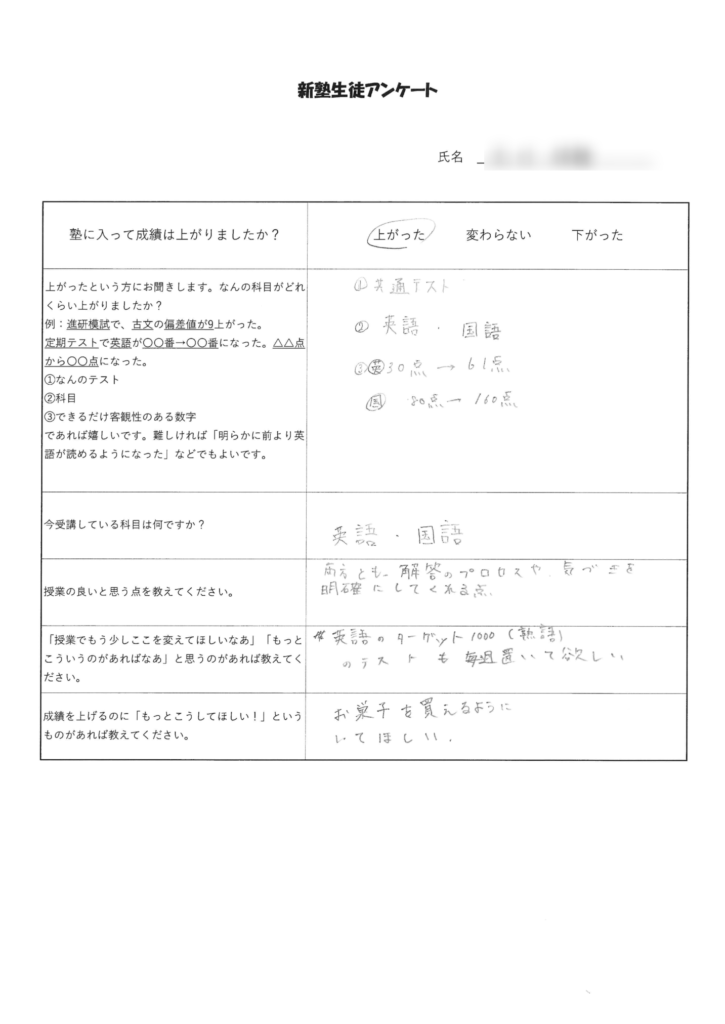 新塾生徒アンケート
氏名
塾に入って成績は上がりましたか？
上がった 変わらない 下がった
上がったという方にお聞きします。なんの科目がどれ
くらい上がりましたか？
例：進研模試で、古文の偏差値が9上がった。
定期テストで英語が〇〇番→〇〇番になった。△△点
から〇〇点になった。
①なんのテスト
②科目
③できるだけ客観性のある数字
であれば嬉しいです。難しければ「明らかに前より英
語が読めるようになった」などでもよいです。
①共通テスト
②英語・国語
③英30点→61点
国 80点→160点
今受講している科目は何ですか？
英語・国語
授業の良いと思う点を教えてください。
両方とも、解答のプロセスや、気づきを
明確にしてくれる点.
「授業でもう少しここを変えてほしいなあ」「もっと
こういうのがあればなあ」と思うのがあれば教えてく
ださい。
英語のターゲット1000（熟語）
のテストも毎週置いて欲しい
成績を上げるのに「もっとこうしてほしい！」という
ものがあれば教えてください。
お菓子を買えるように
してほしい.